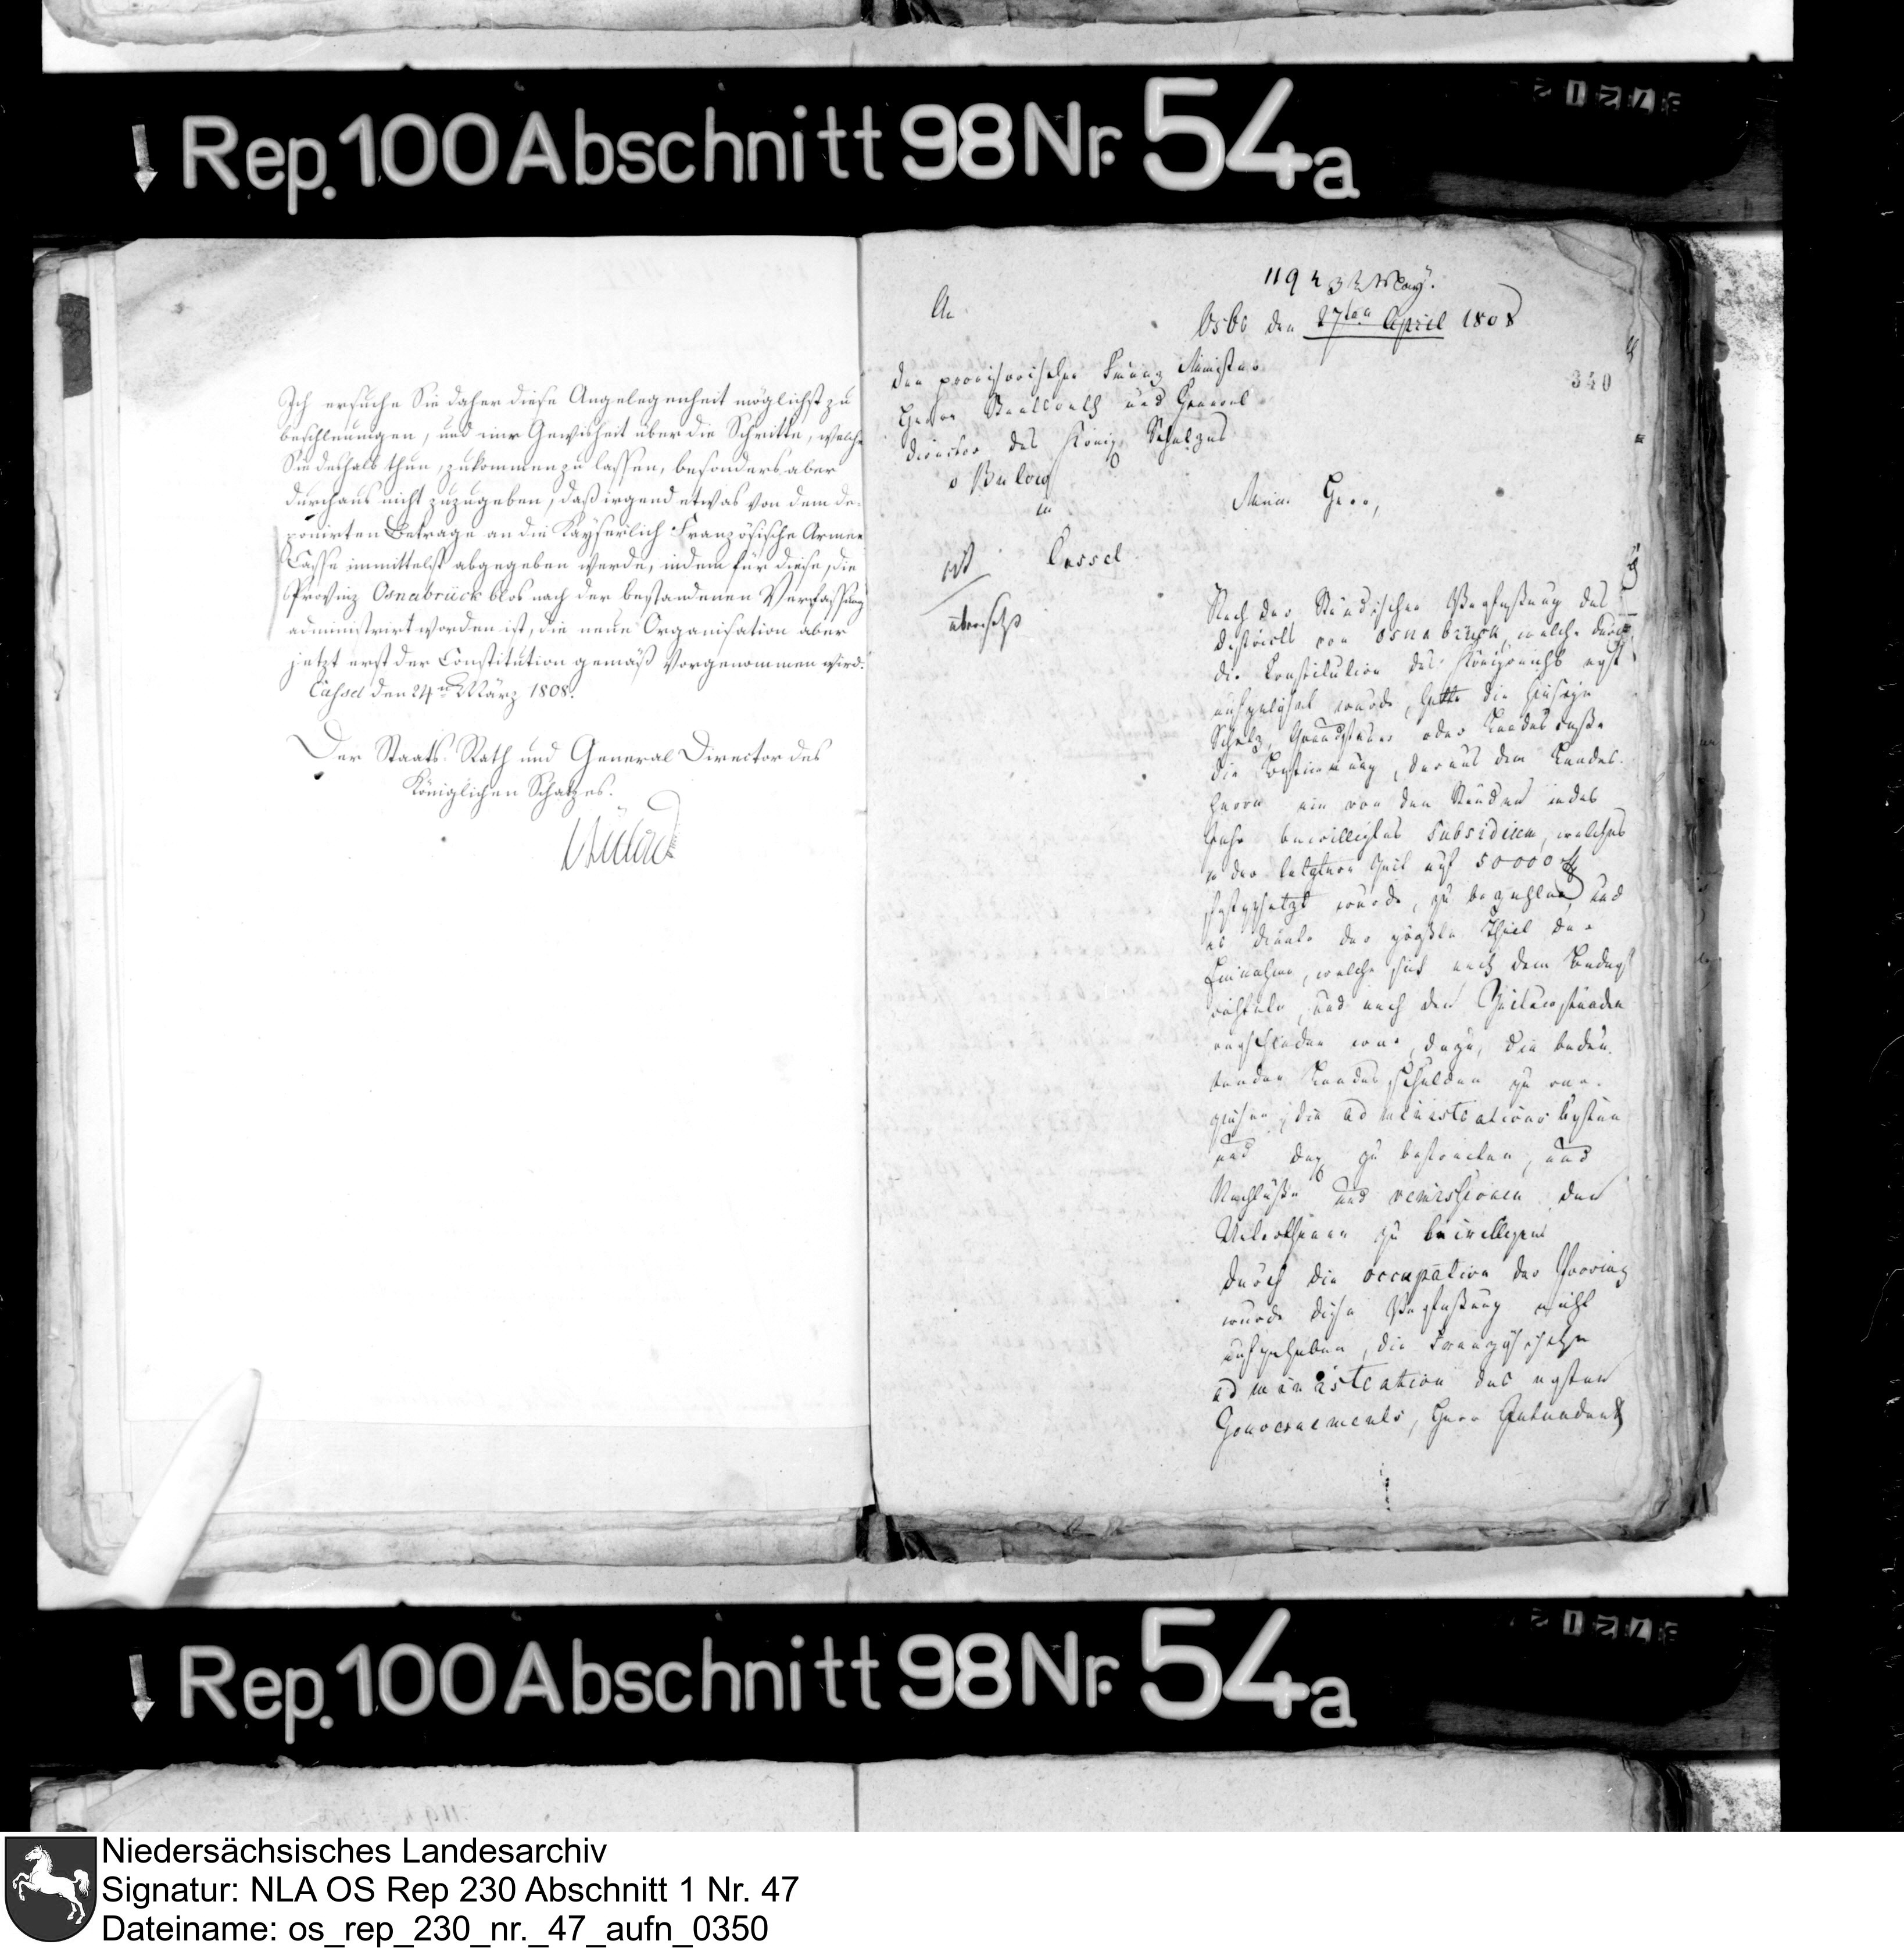 Rep. 100 Abschnitt 98 Nr. 54a
Ich ersuche Sie daher diese Angelegenheit möglichst zu
beschleunigen, und mir Gewisheit über die Schritte, welche
Sie deshalb thun, zukommen zu lassen, besonders aber
durchaus nicht zuzugeben, daß irgend etwas von dem de-
ponirten Betrage an die Kayserlich Französische Armee
Casse immittelst abgegeben werde, indem für diese, die
Provinz Osnabrück blos nach der bestandenen Verfassung
administrirt worden ist, die neue Organisation aber
jetzt erst der Constitution gemäß vorgenommen wird.
Cassel den 24n März 1808.
Der Staats Rath und General Director des
Königlichen Schatzes.
Bülow
119 May.
Osbr den 27ten April 1808
340
An
den provisorischen Finanz Minister
Herrn Staatsrath und General
director des König. Schatzes
v Bulow
in
Cassel
Mein Herr,
Nach der Ständischen Verfaßung des
districts von Osnabrück, welche durch
die Constitution des Königreichs erst
aufgelöset wurde, hatte die hiesige
Schatz, oder Landes Casse
die Bestimmung, daraus dem Landes-
herrn ein von den Ständen jedes
Jahr bewilligtes Subsidium, welches
in der letztern Zeit auf 50000
festgesetzt wurde, zu bezahlen, und
es diente der größte Theil der
Einnahme, welche sich nach dem Bedarf
richtete, und nach den Zeitumständen
verschieden war, dazu, die bedeu-
tenden Landes Schulden zu ver-
zinsen, die administrations Kosten
und zu bestreiten, und
Nachläße und remissionen den
Unterthanen zu bewilligen
Durch die occupation der Provinz
wurde diese Verfaßung nicht
aufgehoben, die Französische
administration des ersten
Gouvernements, Herr Intendant
Rep. 100 Abschnitt 98 Nr. 54a
Niedersächsisches Landesarchiv
Signatur: NLA OS Rep 230 Abschnitt 1 Nr. 47
Dateiname: os_rep_230_nr._47_aufn_0350